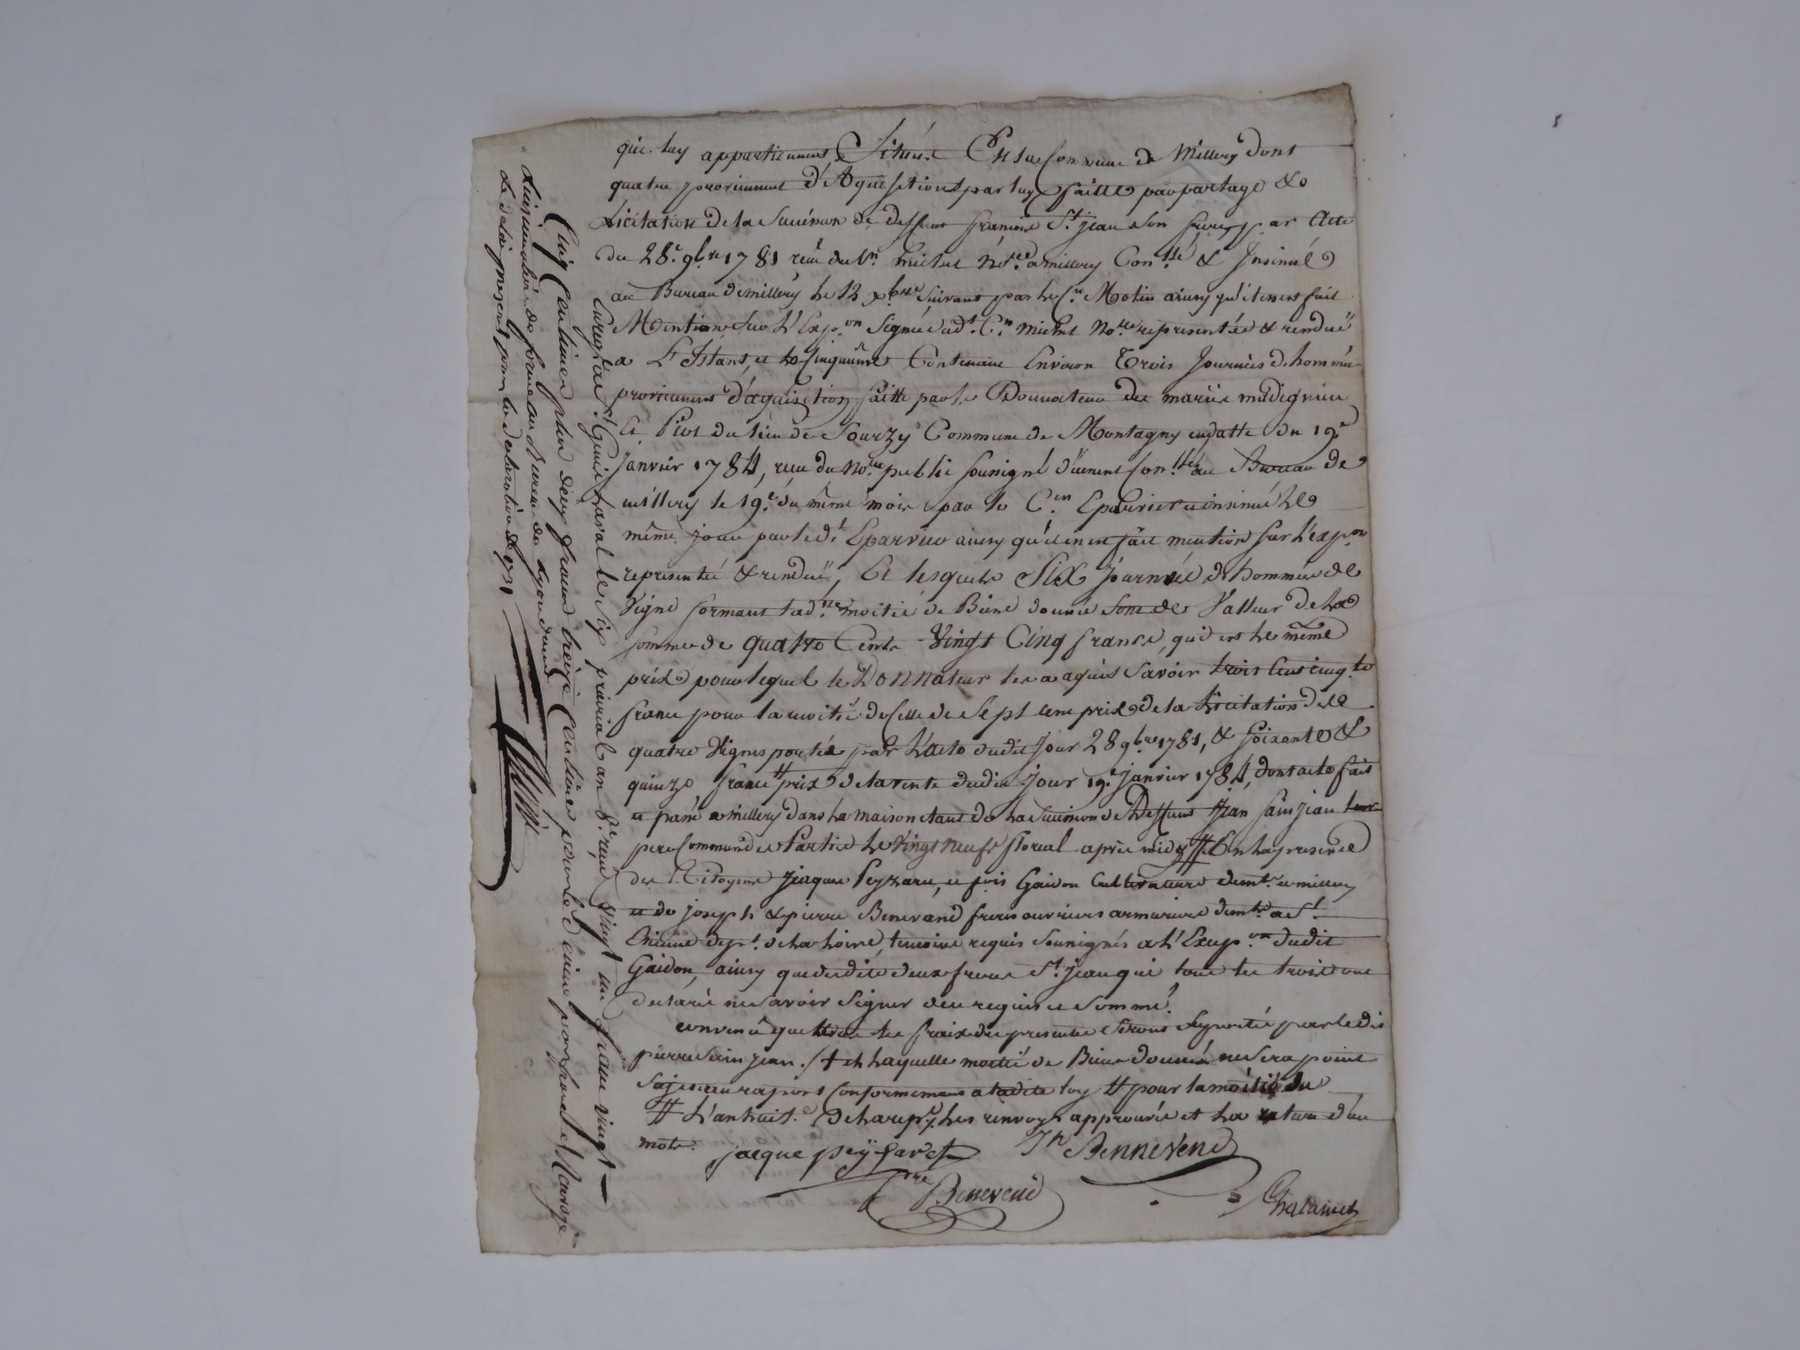 que luy appartiennent, Situés En la Commune de Millery dont
quatre proviennent d'Aquisetions par luy faitte par partage &
Licitation de la Succession de deffunt françois St jean son frere par Acte
du 28e 9bre 1781 reçu du Cn michel Nore a millery Conllé & Insinué
au Bureau de millery le 13 xbre Suivant par le Cn Motin ainsy qu'il en est fait
Mention Sur L'Expon Signée dudt Cn michel Nore representée & rendue
a L'Istant, et la Cinquieme Contenant Environ Trois Journées d'hommée
provienant d'aquisetion faitte par le Donnateur des mariés
et Piot du lieu de Sourzy Commune de Montagny en datte du 19e
janvier 1784, reçu du Nore public soussigné duement Conllé au Bureau de
millery le 19e du même mois par le Cen Eparvier et insinué le
même jour par ledt Eparvier ainsy qu'il en est fait mention sur l'expon
representée & rendue, Et lesquels SIX journées d'hommée de
Vigne formant ladte moitié de Biens donnés sont de Valleur de la
somme de quatre Cents Vingt Cinq francs, qui est le même
prix pour lequel le Donnateur les a aquis Savoir trois Cent cinqte
francs pour la moitié de Celle de Sept cent prix de la Licitation de
quatre Vignes portée par L'acte dudit Jour 28 9bre 1781, & soixante &
quinze francs prix de la vente dudit jour 19e janvier 1784, dont acte fait
et passé a millery dans la maison etant de la Succession de Deffunt Jean Sainjean leur
pere Commune de Partie le Vingt neuf floreal après midy En la presence
des Citoyens Jacque Peyzaret, et fois Gaidon Cultivateurs demts a millery
et de joseph & pierre Benevand freres ouvriers armuriers demts a St
Etienne dept de la Loire, temoins requis soussignés a L'Excepon dudit
Gaidon, ainsy que desdits deux freres St jean qui tous les trois ont
declaré ne savoir signer de ce requis et sommé.
convenu que les frais des presentes seront suportés par ledit
pierre sain jean. / et laquelle moitié de Biens donnés ne sera point
sujette au raport conformement a ladite loy pour la moitié du
de la les renvoys approuvés et la rature d'un
mots. jacque peÿsaret Jh BenneVend
pre Benevend Chalamet
Enregtré a St Genis Laval le Six prairial an 8e reçu Vingt un francs vingt
Cinq Centimes plus deux francs treize Centimes pour le
L'insinuation se fera au Bureau de Lyon dans
le delai prescrit par la declaration de 1731